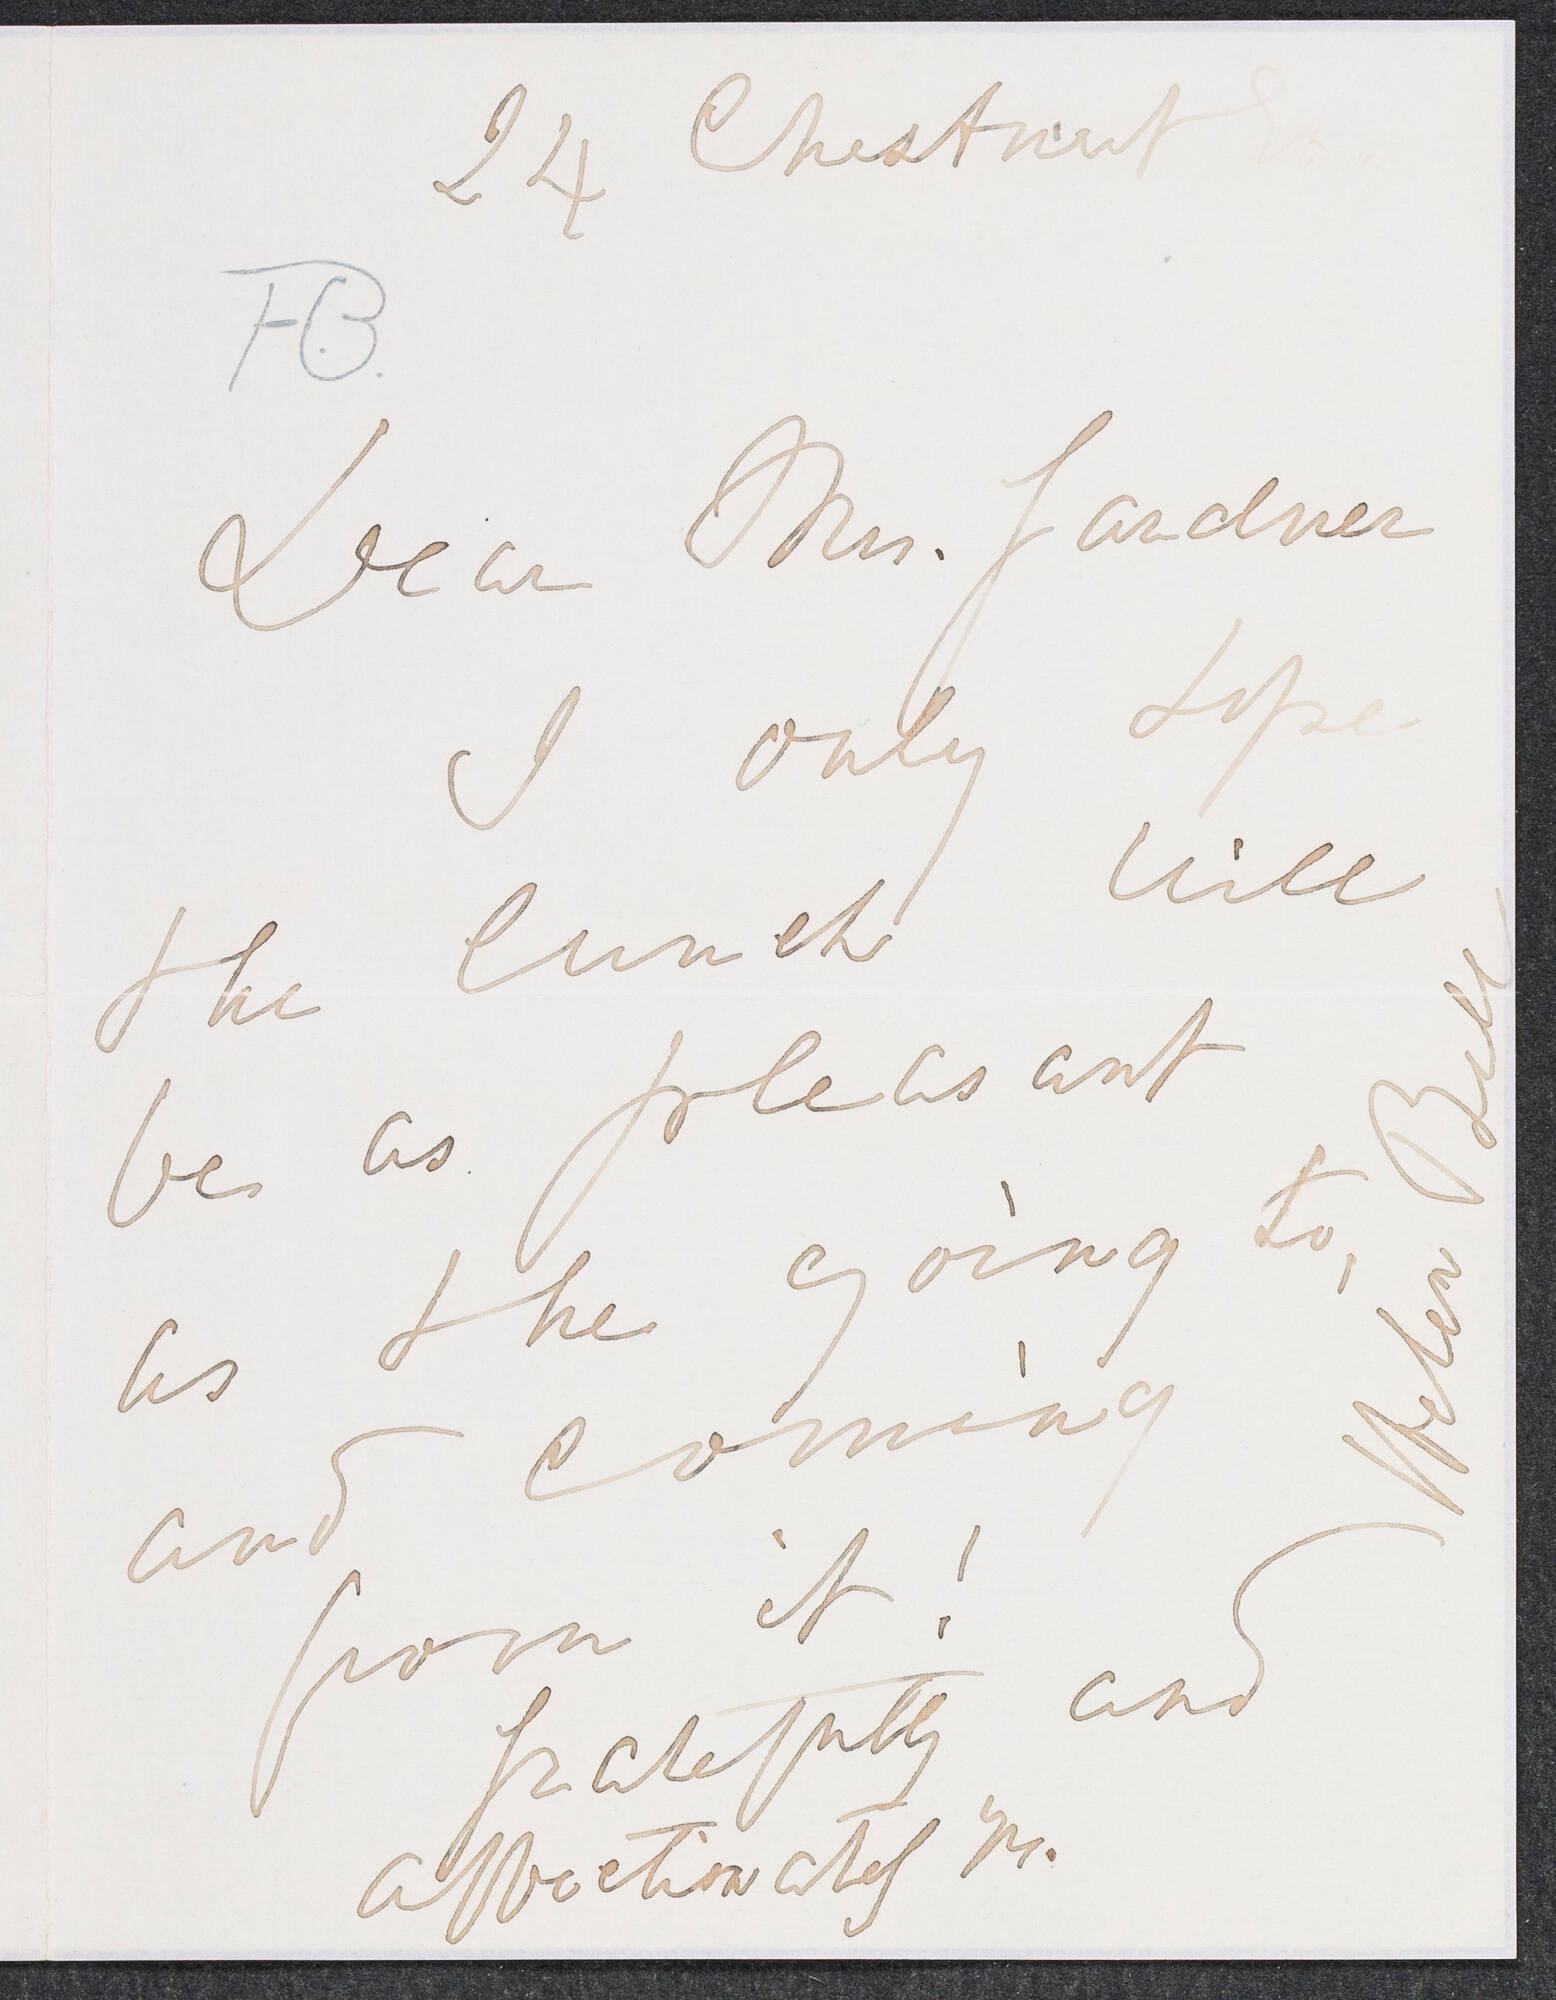 24 Chestnut St.
F.B.
Dear Mrs. Gardner
I only hope
the lunch will
be as pleasant
as the going to,
and coming
from it!
Gratefully and
affectionately yrs.
Helen Bell